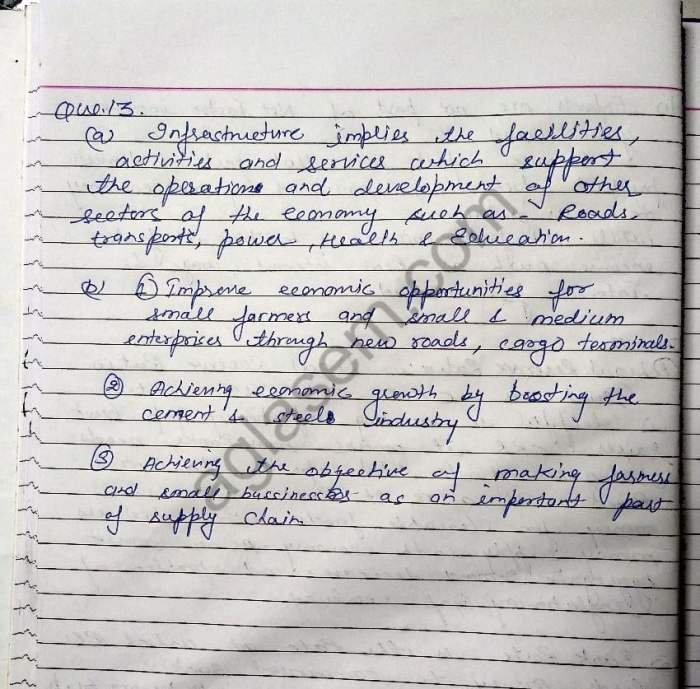 Que.13.
(a) Infrastructure implies the facilities,
activities and services which support
the operations and development of other
sectors of the economy such as - Roads,
transports, power, Health & Education.
b) ① Improve economic opportunities for
small farmers and small & medium
enterprises through new roads, cargo terminals.
② Achieving economic growth by boosting the
cement & steel industry
③ Achieving the objective of making farmers
and small bussinesses as an important part
of supply chain.
aglasem.com